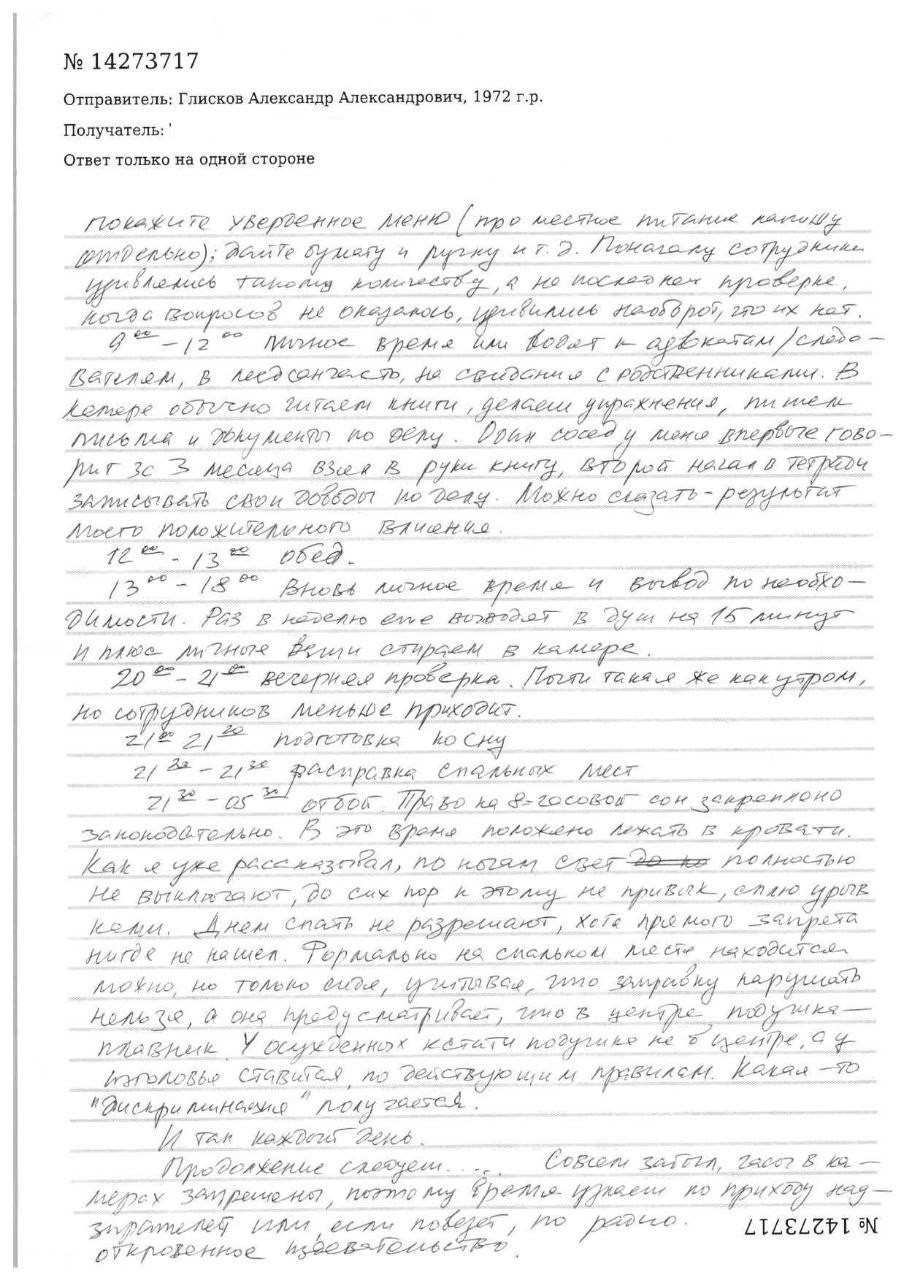 № 14273717
Отправитель: Глисков Александр Александрович, 1972 г.р.
Получатель: '
Ответ только на одной стороне
покажите утвержденное меню (про местное питание напишу
отдельно); дайте бумагу и ручку и т.д. Поначалу сотрудники
удивлялись такому количеству, а на последней проверке,
когда вопросов не оказалось, удивились наоборот, что их нет.
9 00 – 12 00 личное время или водят к адвокатам/следо-
вателям, в медсанчасть, на свидания с родственниками. В
камере обычно читаем книги, делаем упражнения, пишем
письма и документы по делу. Один сосед у меня впервые гово-
рит за 3 месяца взял в руки книгу, второй начал в тетради
записывать свои доводы по делу. Можно сказать - результат
моего положительного влияния.
12 00 - 13 00 обед.
13 00 - 18 00 Вновь личное время и вывод по необхо-
димости. Раз в неделю еще выводят в душ на 15 минут
и плюс личные вещи стираем в камере.
20 00 - 21 00 вечерняя проверка. Почти такая же как утром,
но сотрудников меньше приходит.
21 00 21 20 подготовка ко сну
21 20 - 21 30 расправка спальных мест
21 30 - 05 30 отбой. Право на 8-часовой сон закреплено
законодательно. В это время положено лежать в кровати.
Как я уже рассказывал, по ночам свет полностью
не выключают, до сих пор к этому не привык, сплю урыв
ками. Днем спать не разрешают, хотя прямого запрета
нигде не нашел. Формально на спальном месте находится
можно, но только сидя, учитывая, что заправку нарушать
нельзя, а она предусматривает, что в центре подушка –
плавник. У осужденных кстати подушка не в центре, а у
изголовья ставится, по действующим правилам. Какая-то
"дискриминация" получается.
И так каждый день.
Продолжение следует..... Совсем забыл, часы в ка-
мерах запрещены, поэтому время узнаем по приходу над-
зирателей или, если повезет, по радио.
откровенное издевательство.
№ 14273717